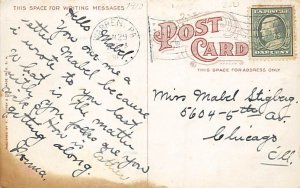 THIS SPACE FOR WRITING MESSAGES
Hello Mabel
You owe me a
letter Mabel because
I wrote to you last
what is the matter
with the folks are you
How is
getting along.
Emma.
POST
CARD
THIS SPACE FOR ADDRESS ONLY
ONE CENT
Miss Mabel
5604-5th av.
Chicago
Ill.